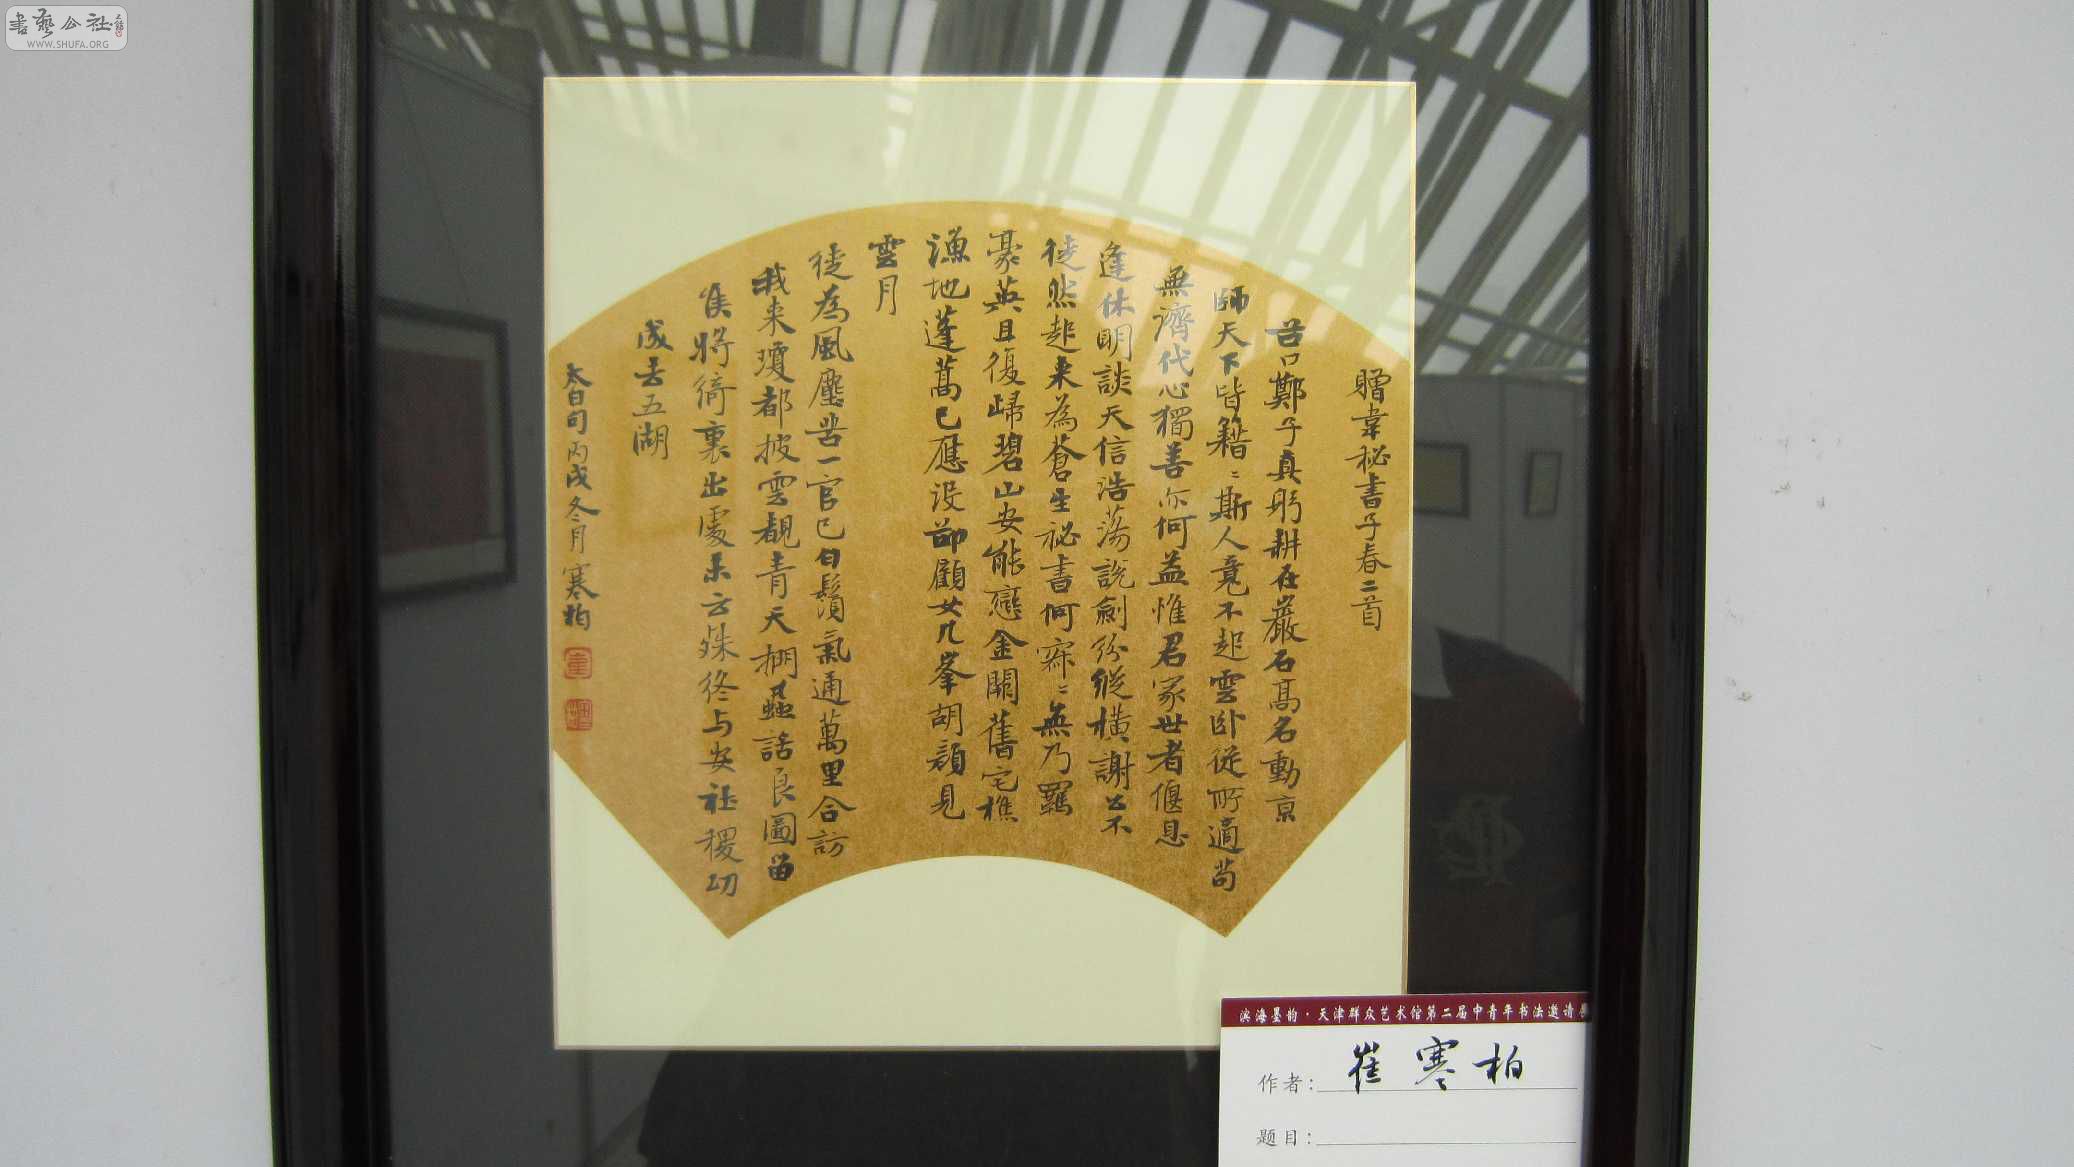 書藝公社
WWW.SHUFA.ORG
贈韋秘書子春二首
苦口鄭子真躬耕在巖石高名動京
師天下皆籍〻斯人竟不起雲卧從所適苟
無濟代心獨善亦何益惟君家世者偃息
逢休明談天信浩荡說劍紛縱橫謝公不
徒然起来為蒼生秘書何寂〻無乃羈
豪英且復歸碧山安能戀金闕舊宅樵
漁地蓬蒿已應没郤顧女几峯胡顔見
雲月
徒為風塵苦一官已白鬚氣通萬里合訪
我来瓊都披雲覩青天捫蝨話良圖留
侯将綺裏出處未云殊终与安社稷功
成去五湖
太白句丙戌冬月寒柏
滨海墨韵·天津群众艺术馆第二届中青年书法邀请展
作者：崔寒柏
题目：